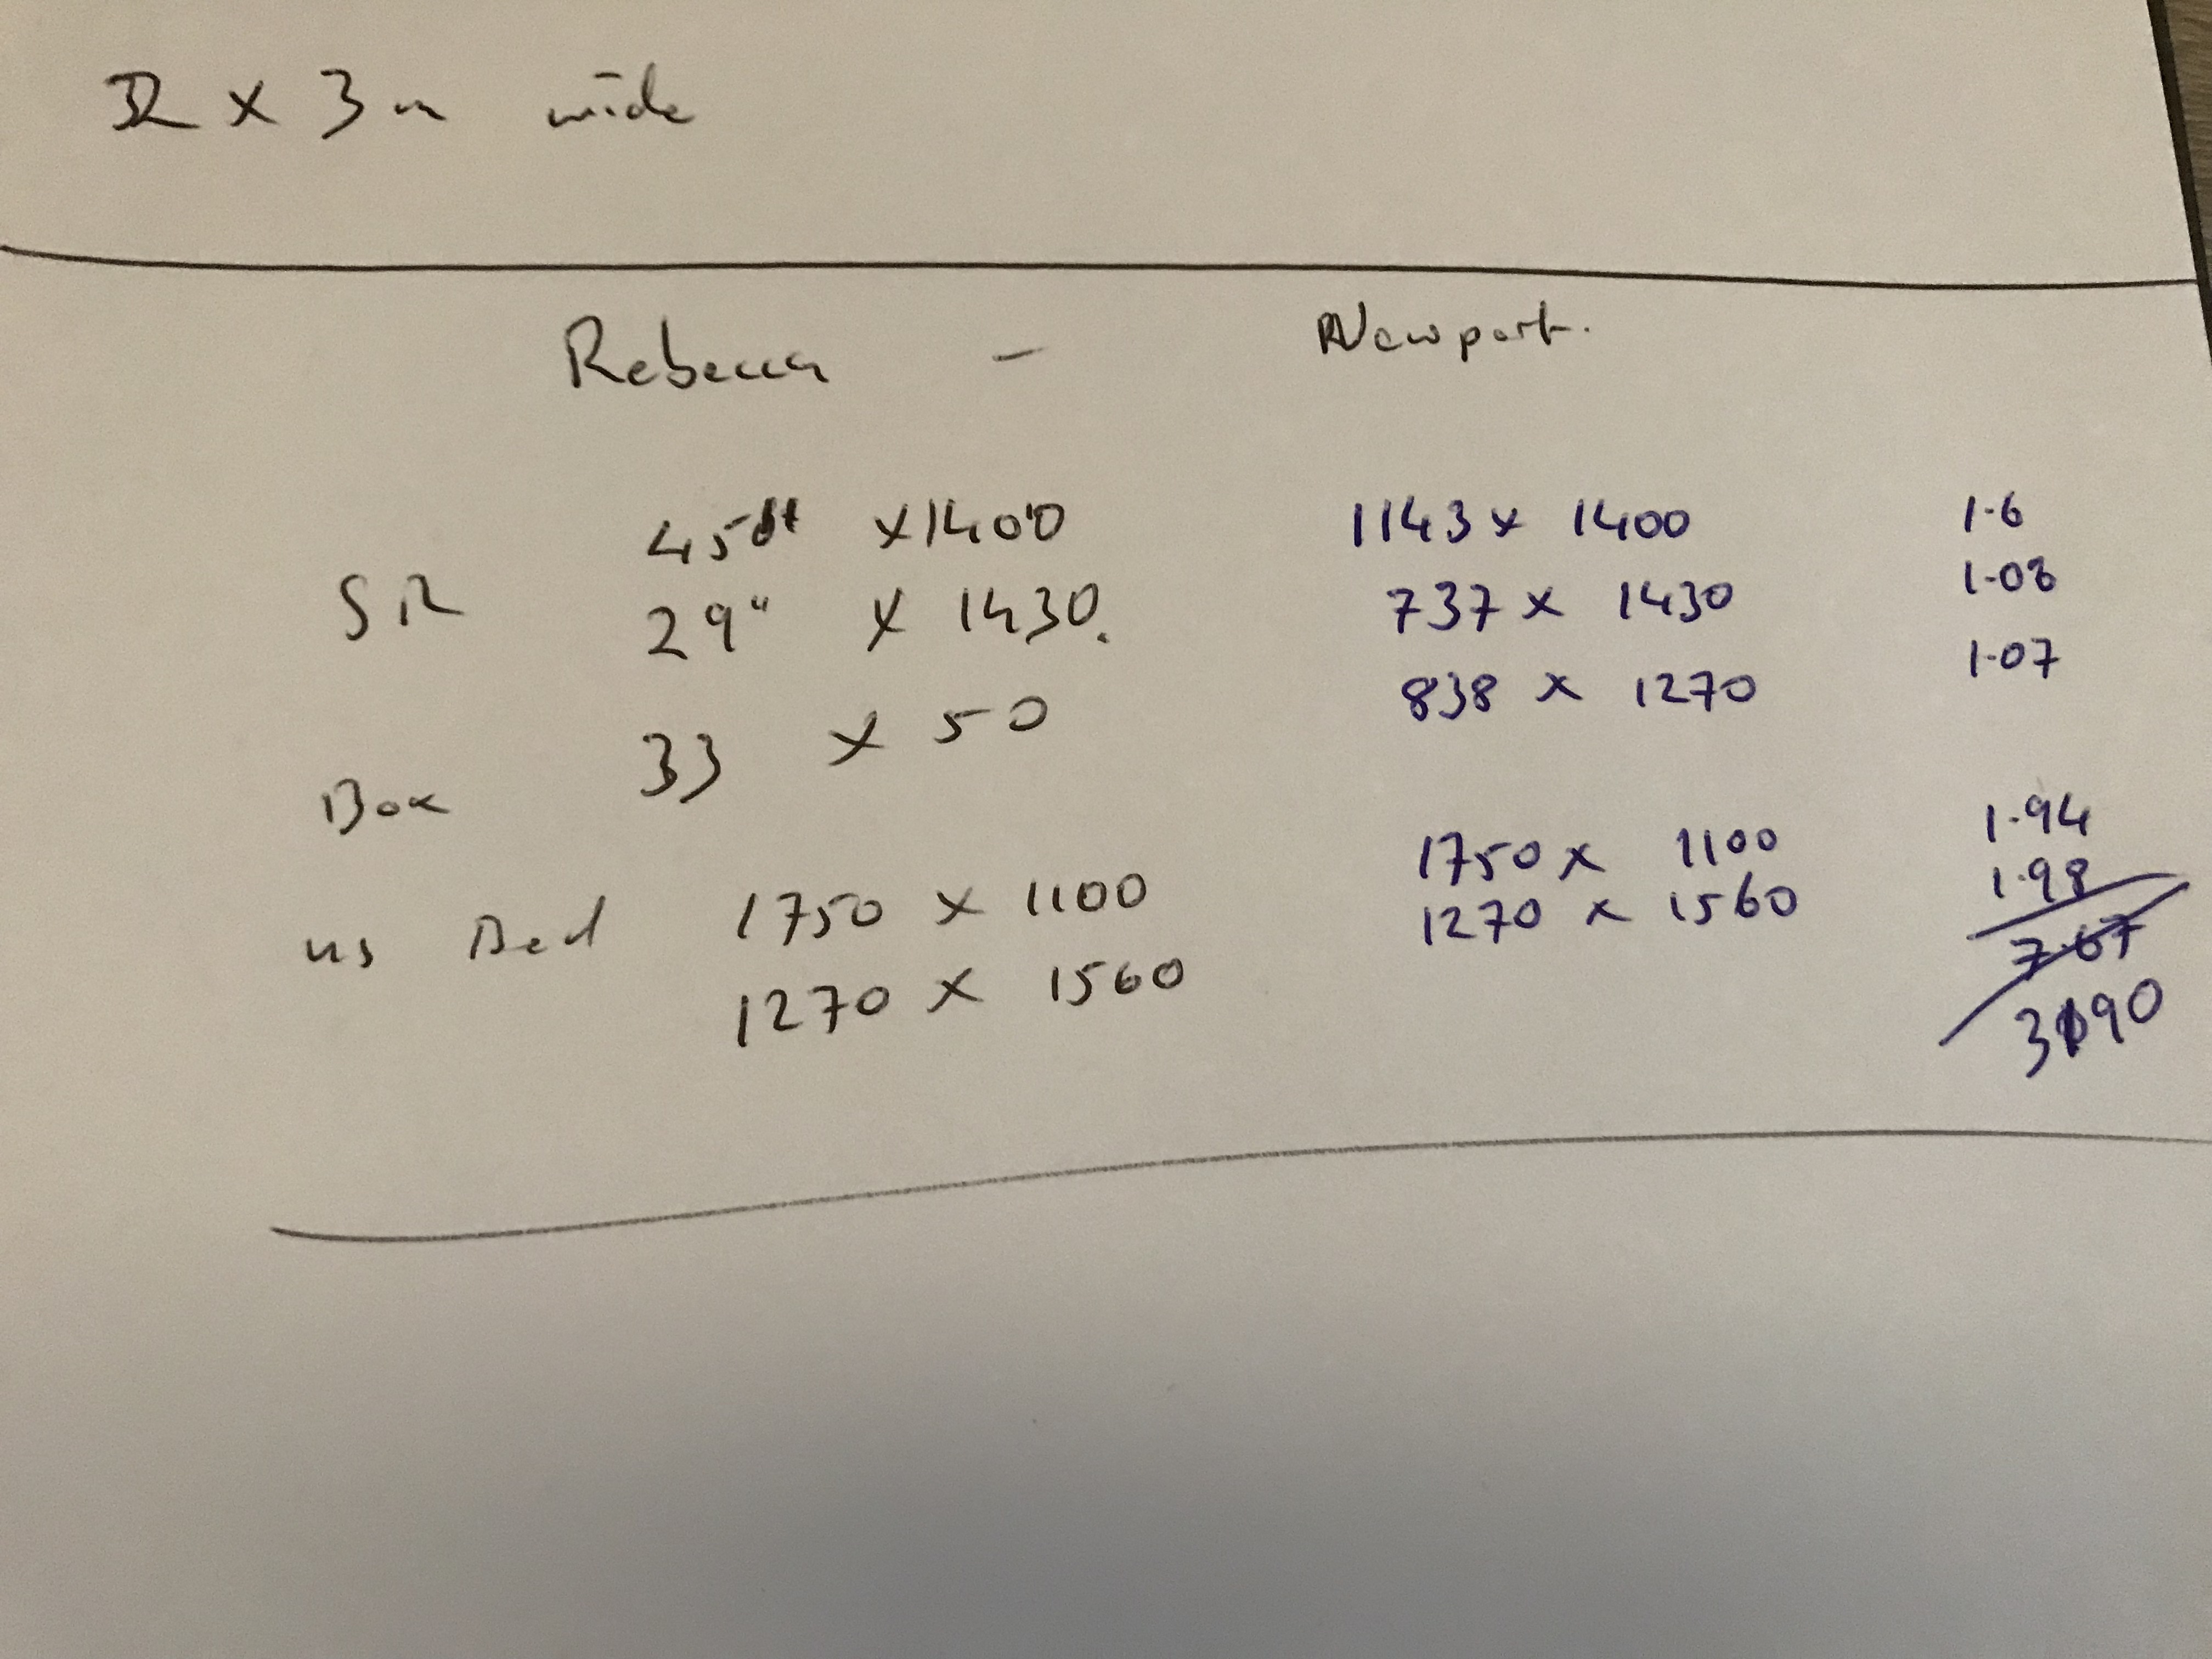 x 3m wide
Rebecca - Newport.
45" x 1400 1143 x 1400 1.6
SR 29" x 1430. 737 x 1430 1.08
Box 33 x 50 838 x 1270 1.07
us Bed 1750 x 1100 1750 x 1100 1.94
1270 x 1560 1270 x 1560 1.98
7.67